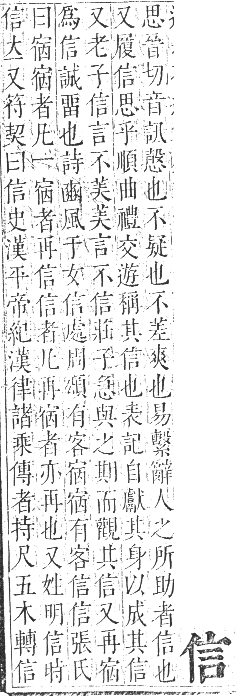 信
思晉切音訊慤也不疑也不差爽也易繫辭人之所助者信也
又履信思乎順曲禮交遊稱其信也表記自獻其身以成其信
又老子信言不美美言不信莊子急與之期而觀其信又再宿
爲信誠畱也詩豳風于女信處周頌有客宿宿有客信信張氏
曰宿宿者凡一宿者再信信者凡再宿者亦再也又姓明信時
信大又符契曰信史漢平帝紀漢律諸乘傳者持尺五木轉信